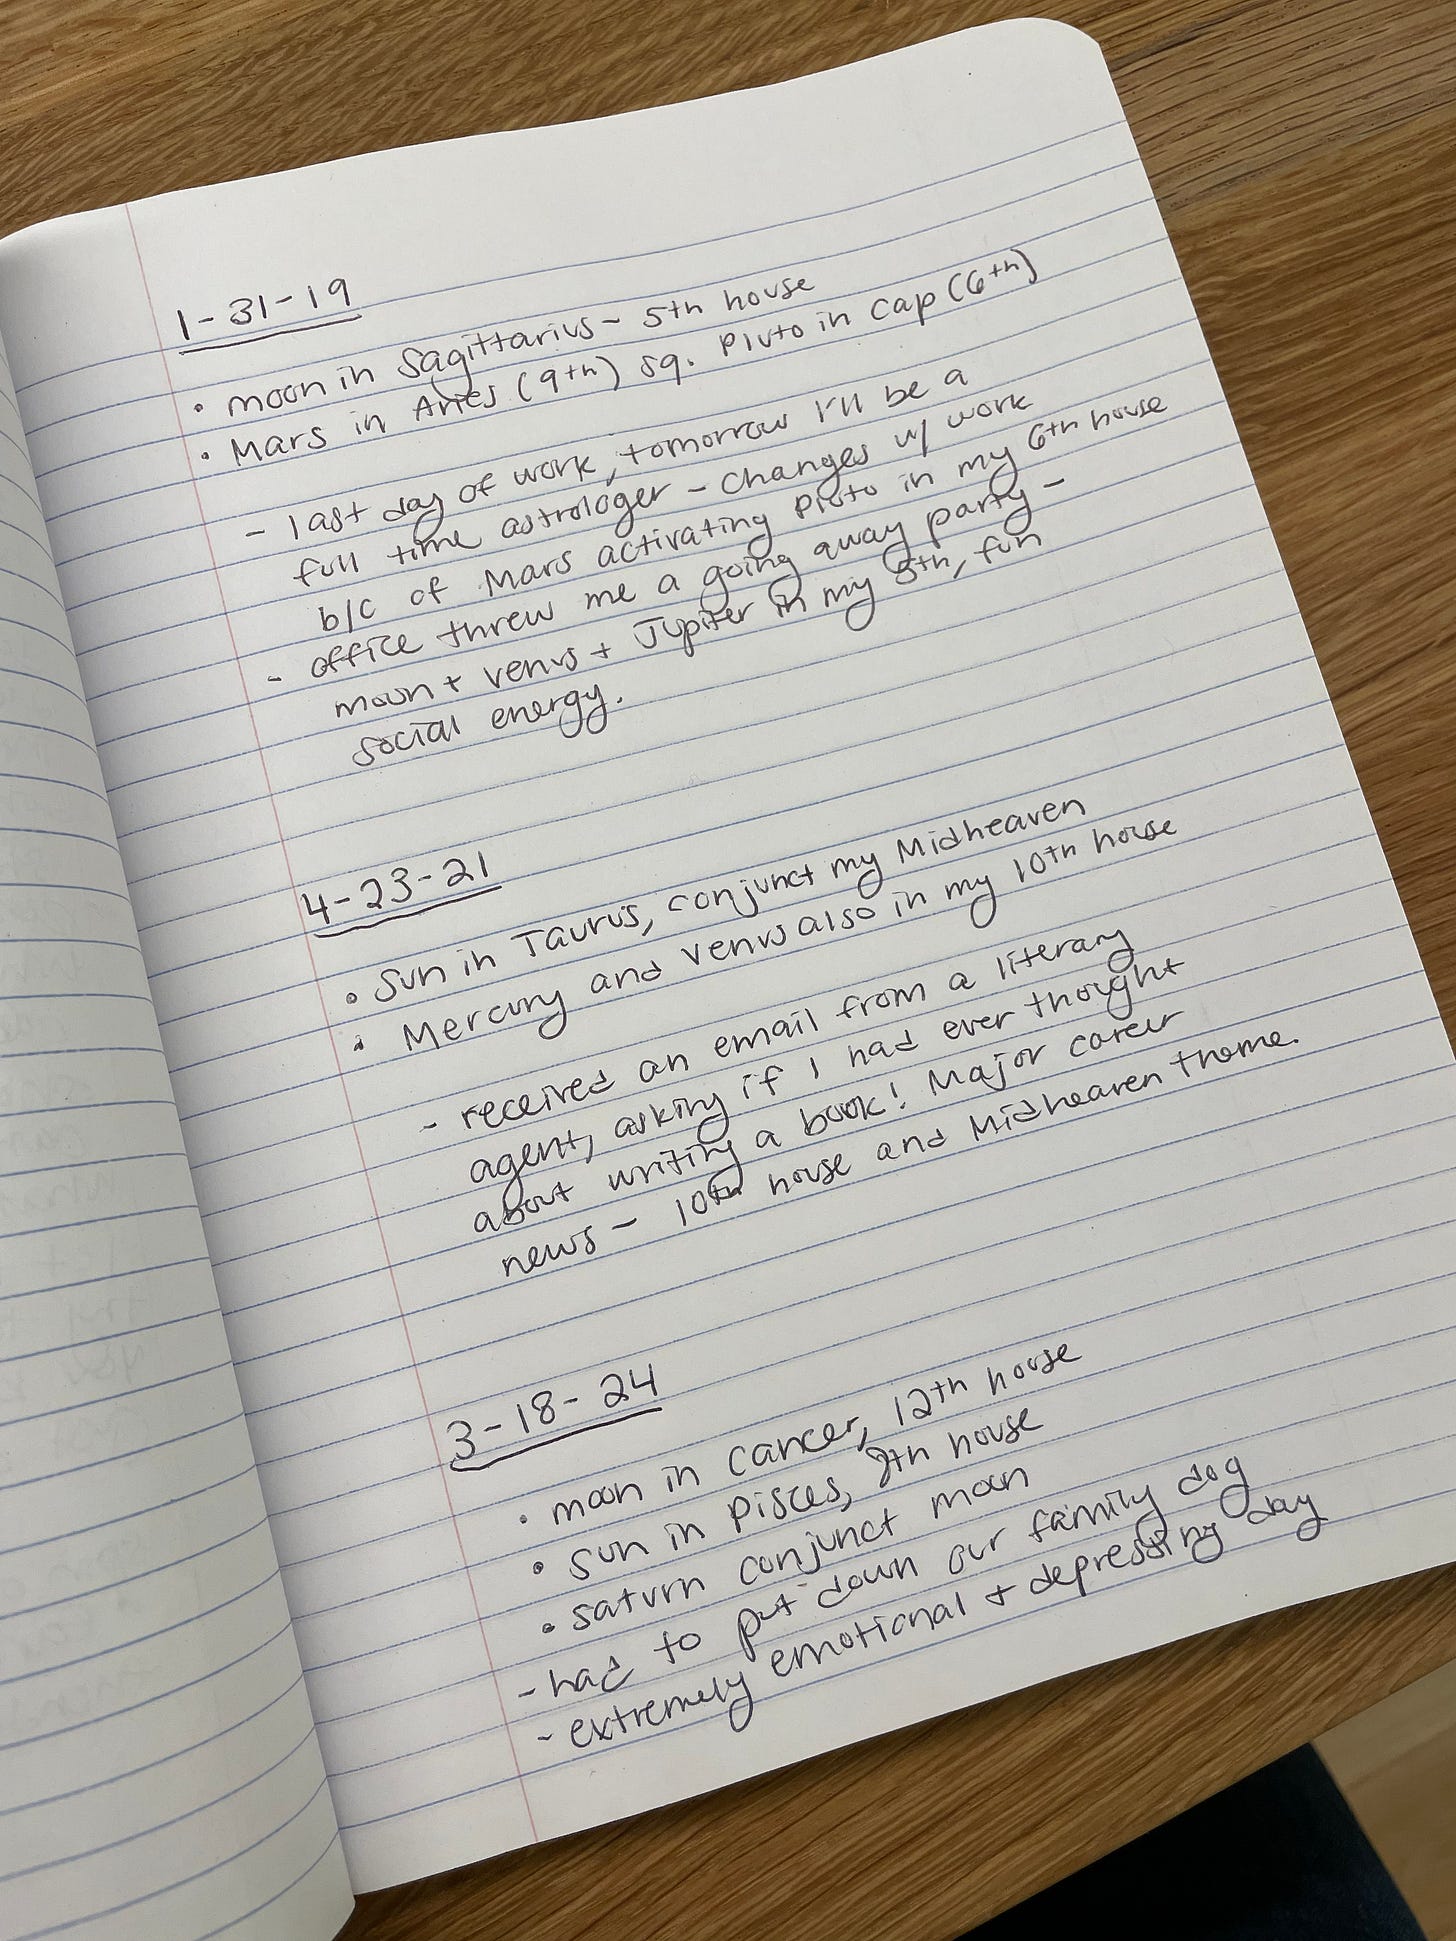 1-31-19
• moon in Sagittarius - 5th house
• Mars in Aries (9th) sq. Pluto in Cap (6th)
- last day of work, tomorrow I'll be a
full time astrologer - changes w/ work
b/c of Mars activating Pluto in my 6th house
- office threw me a going away party -
moon + venus + Jupiter in my 5th, fun
social energy.
4-23-21
• Sun in Taurus, conjunct my Midheaven
• Mercury and Venus also in my 10th house
- received an email from a literary
agent, asking if I had ever thought
about writing a book! Major career
news - 10th house and Midheaven theme.
3-18-24
• moon in Cancer, 12th house
• sun in Pisces, 8th house
• saturn conjunct moon
- had to put down our family dog
- extremely emotional + depressing day